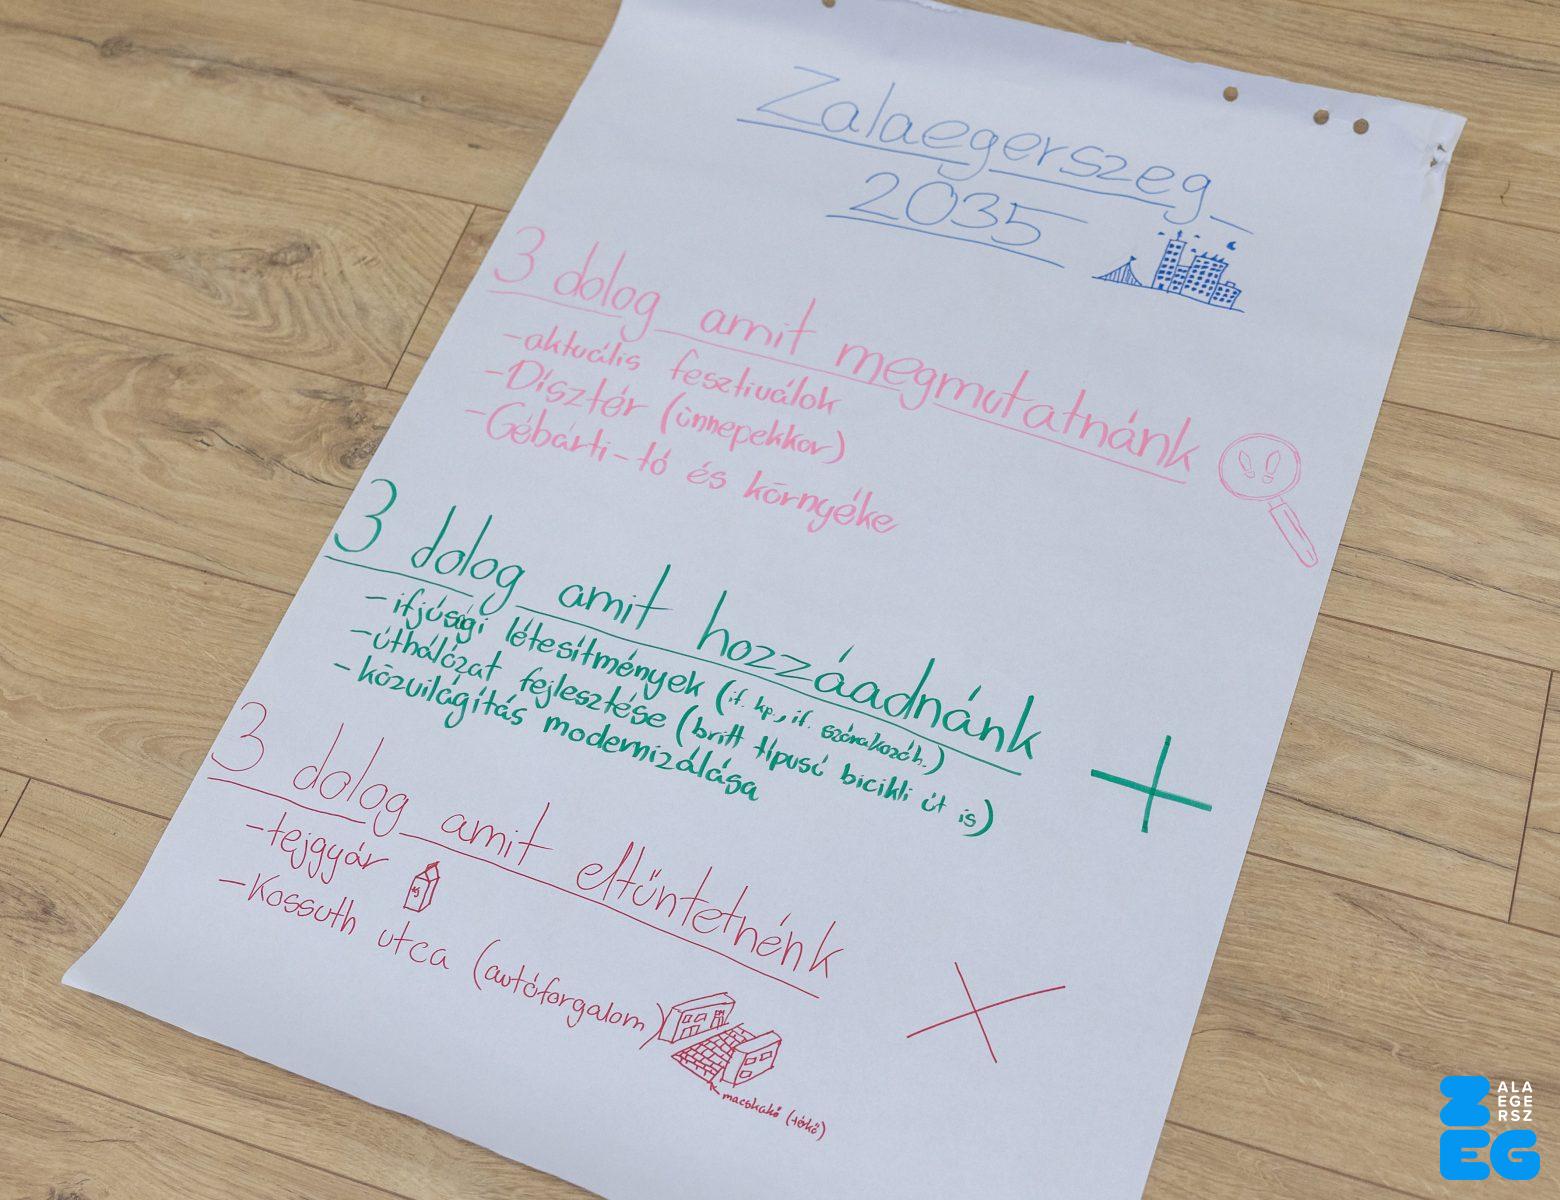 Zalaegerszeg
2035
3 dolog amit megmutatnánk
-aktuális fesztiválok
-Dísztér (ünnepekkor)
-Gébárti-tó és környéke
3 dolog amit hozzáadnánk
-ifjúsági létesítmények (if. kp., if. szórakozóh.)
-úthálózat fejlesztése (britt típusú bicikli út is)
-közvilágítás modernizálása
3 dolog amit eltűntetnénk
-tejgyár
-Kossuth utca (autóforgalom)
macskakő (térkő)
ZALA
EGE
RSZ
EG